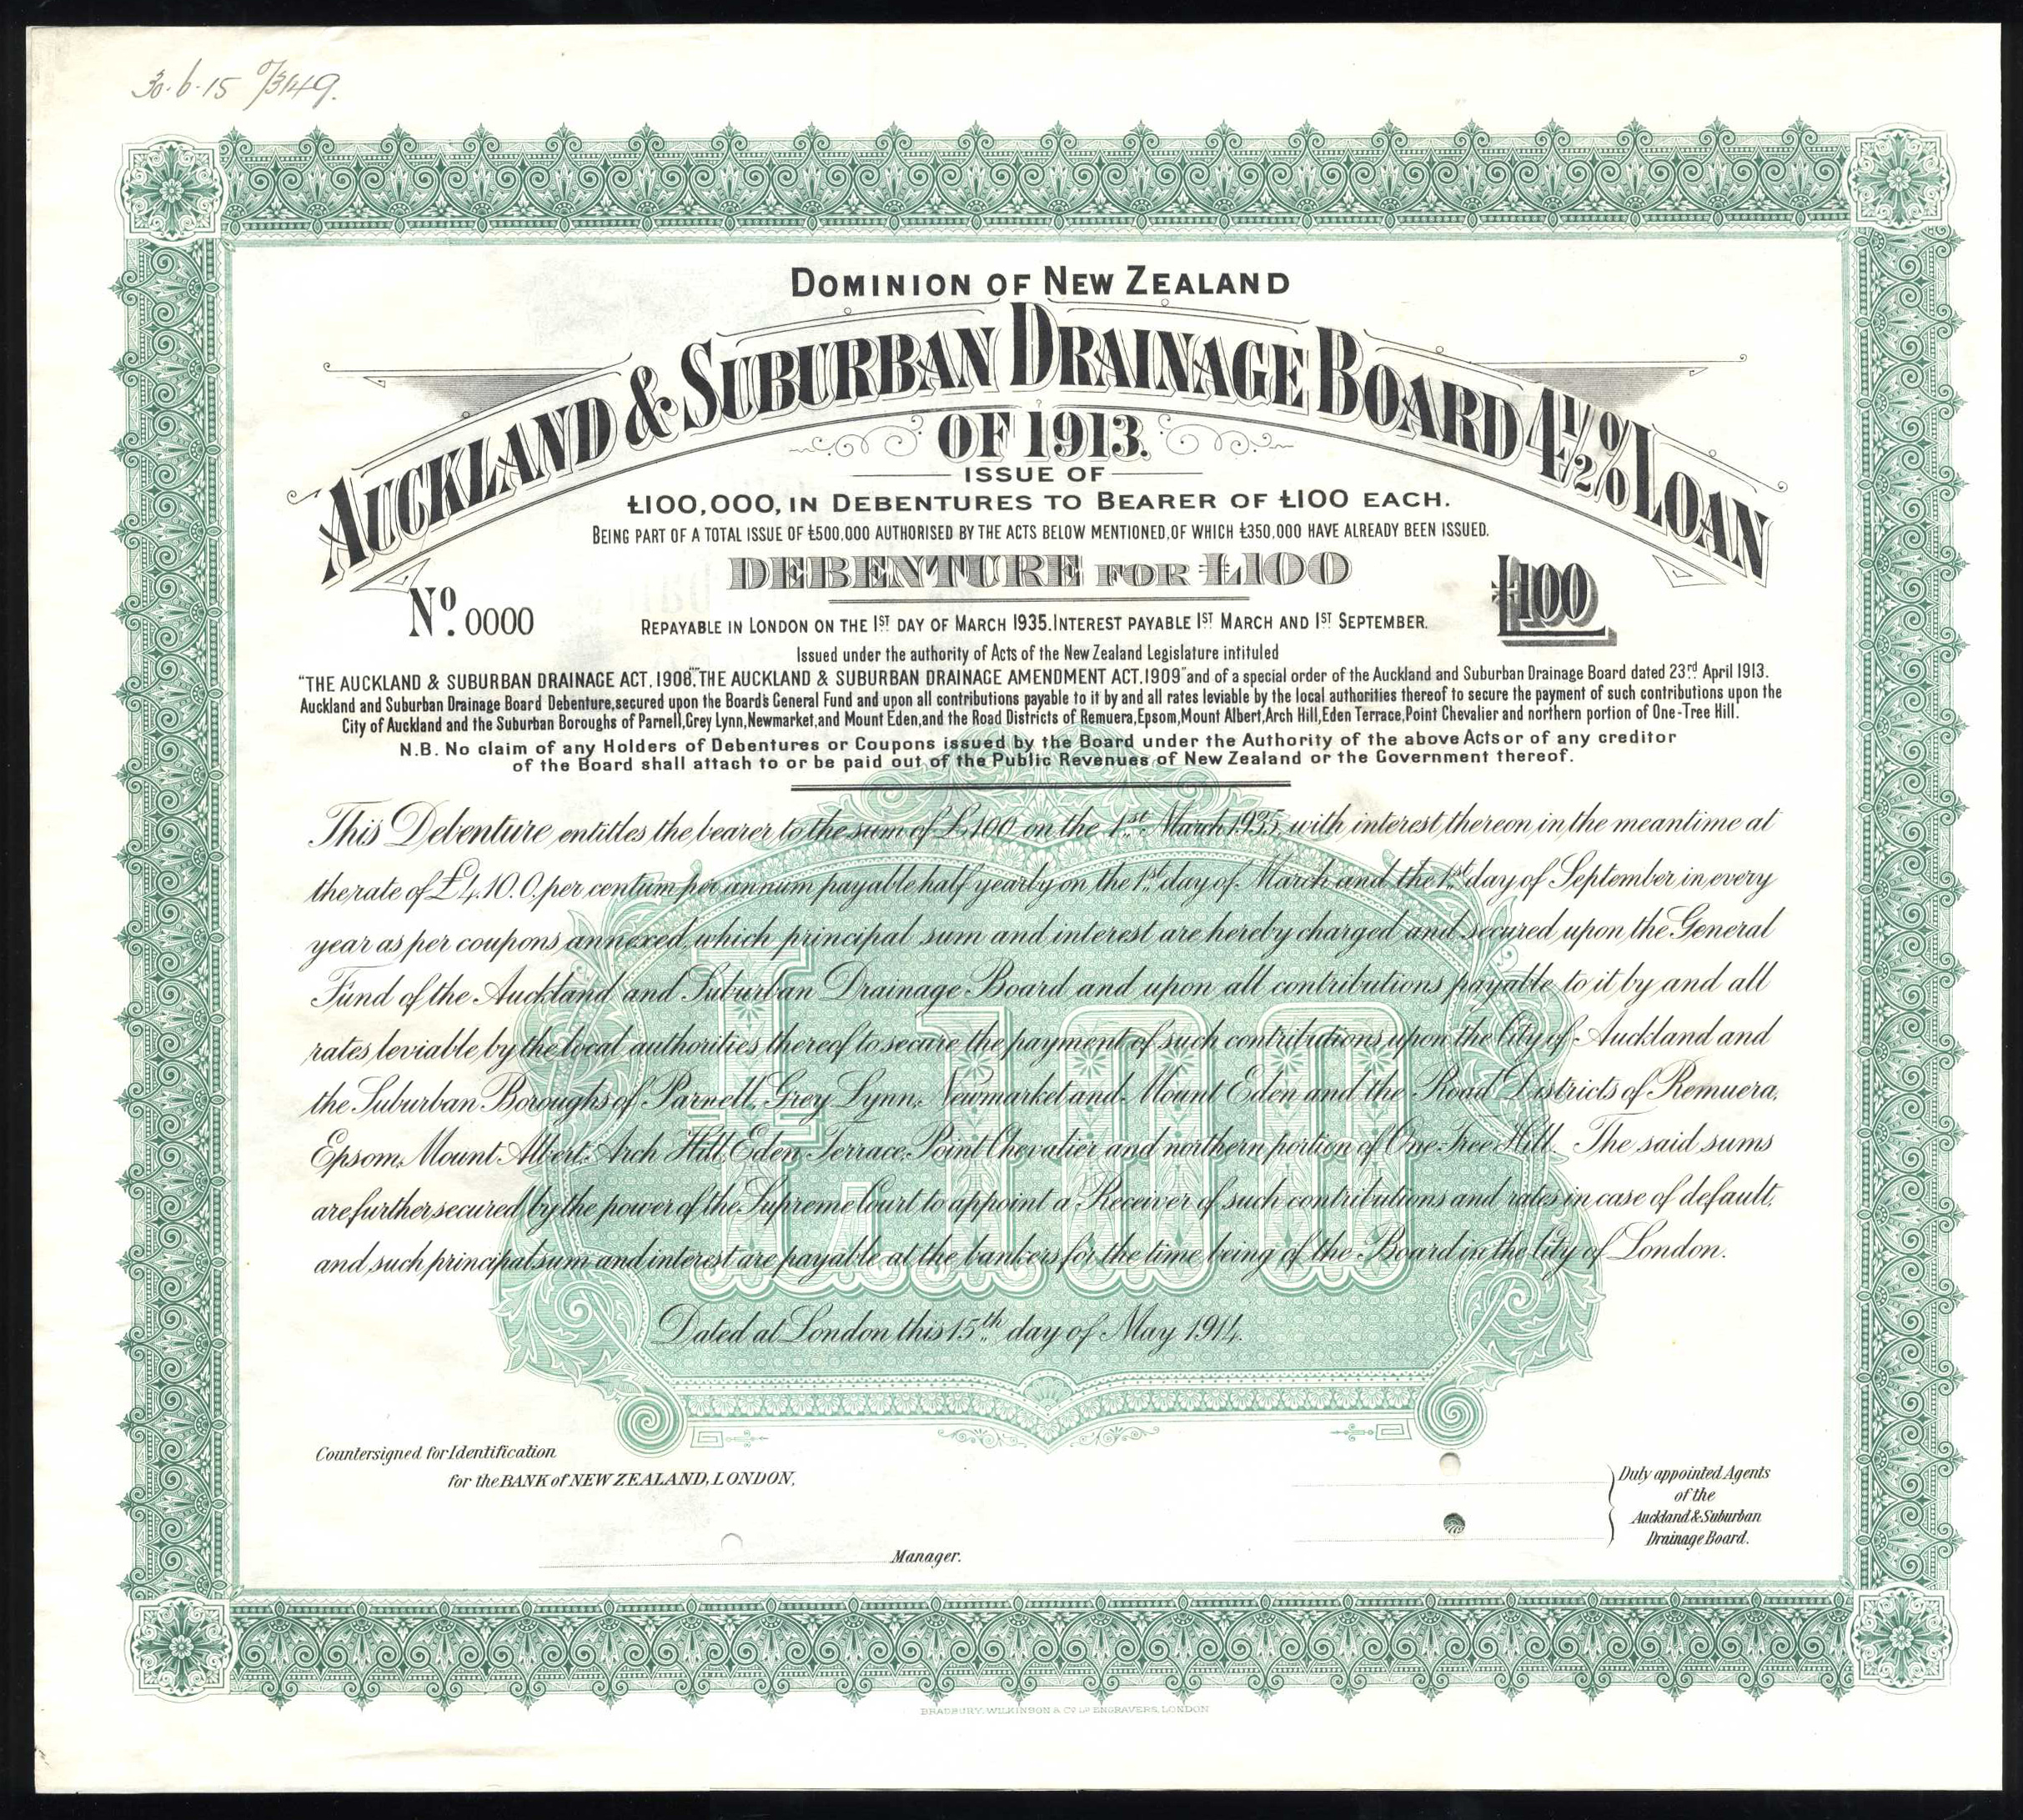 30.6.15
DOMINION OF NEW ZEALAND
AUCKLAND & SUBURBAN DRAINAGE BOARD 4½% LOAN
OF 1913.
ISSUE OF
£100,000, IN DEBENTURES TO BEARER OF £100 EACH.
BEING PART OF A TOTAL ISSUE OF £500,000 AUTHORISED BY THE ACTS BELOW MENTIONED, OF WHICH £350,000 HAVE ALREADY BEEN ISSUED.
DEBENTURE FOR £100
£100
No. 0000
REPAYABLE IN LONDON ON THE 1ST DAY OF MARCH 1935. INTEREST PAYABLE 1ST MARCH AND 1ST SEPTEMBER.
Issued under the authority of Acts of the New Zealand Legislature intituled
"THE AUCKLAND & SUBURBAN DRAINAGE ACT, 1908", "THE AUCKLAND & SUBURBAN DRAINAGE AMENDMENT ACT, 1909" and of a special order of the Auckland and Suburban Drainage Board dated 23rd April 1913.
Auckland and Suburban Drainage Board Debenture, secured upon the Board's General Fund and upon all contributions payable to it by and all rates leviable by the local authorities thereof to secure the payment of such contributions upon the
City of Auckland and the Suburban Boroughs of Parnell, Grey Lynn, Newmarket, and Mount Eden, and the Road Districts of Remuera, Epsom, Mount Albert, Arch Hill, Eden Terrace, Point Chevalier and northern portion of One-Tree Hill.
N.B. No claim of any Holders of Debentures or Coupons issued by the Board under the Authority of the above Acts or of any creditor
of the Board shall attach to or be paid out of the Public Revenues of New Zealand or the Government thereof.
This Debenture entitles the bearer to the sum of £100 on the 1st March 1935, with interest thereon in the meantime at
the rate of £4.10.0. per centum per annum payable half yearly on the 1st day of March and the 1st day of September in every
year as per coupons annexed, which principal sum and interest are hereby charged and secured upon the General
Fund of the Auckland and Suburban Drainage Board and upon all contributions payable to it by and all
rates leviable by the local authorities thereof to secure the payment of such contributions upon the City of Auckland and
the Suburban Boroughs of Parnell, Grey Lynn, Newmarket and Mount Eden and the Road Districts of Remuera,
Epsom, Mount Albert, Arch Hill, Eden Terrace, Point Chevalier and northern portion of One-Tree Hill. The said sums
are further secured by the power of the Supreme Court to appoint a Receiver of such contributions and rates in case of default,
and such principal sum and interest are payable at the bankers for the time being of the Board in the City of London.
£100
Dated at London this 15th day of May 1914.
Countersigned for Identification
for the BANK of NEW ZEALAND, LONDON,
Manager.
Duly appointed Agents
of the
Auckland & Suburban
Drainage Board.
BRADBURY, WILKINSON & Co. Ld. ENGRAVERS, LONDON